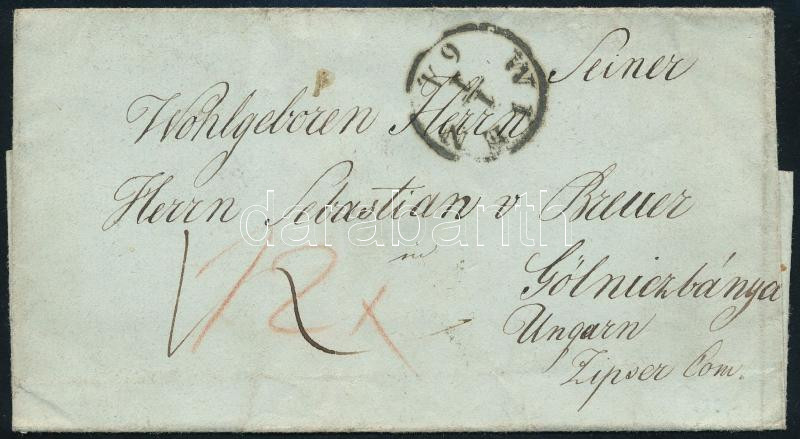 Seiner
Wohlgeboren Herrn
Herrn Sebastian v Breuer
in
Gölniczbánya
Ungarn
Zipser Com.
12x
WIEN
darabanth